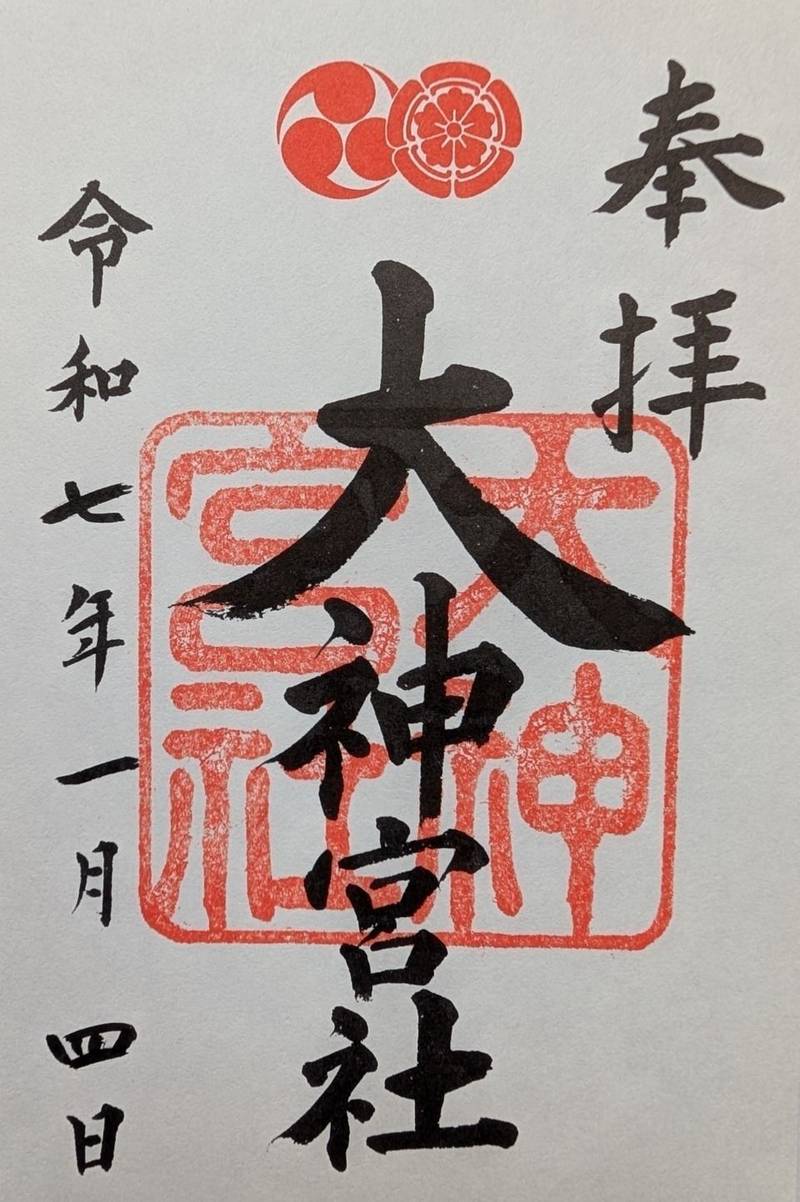 奉拝
大神宮社
大神宮社
令和七年一月四日